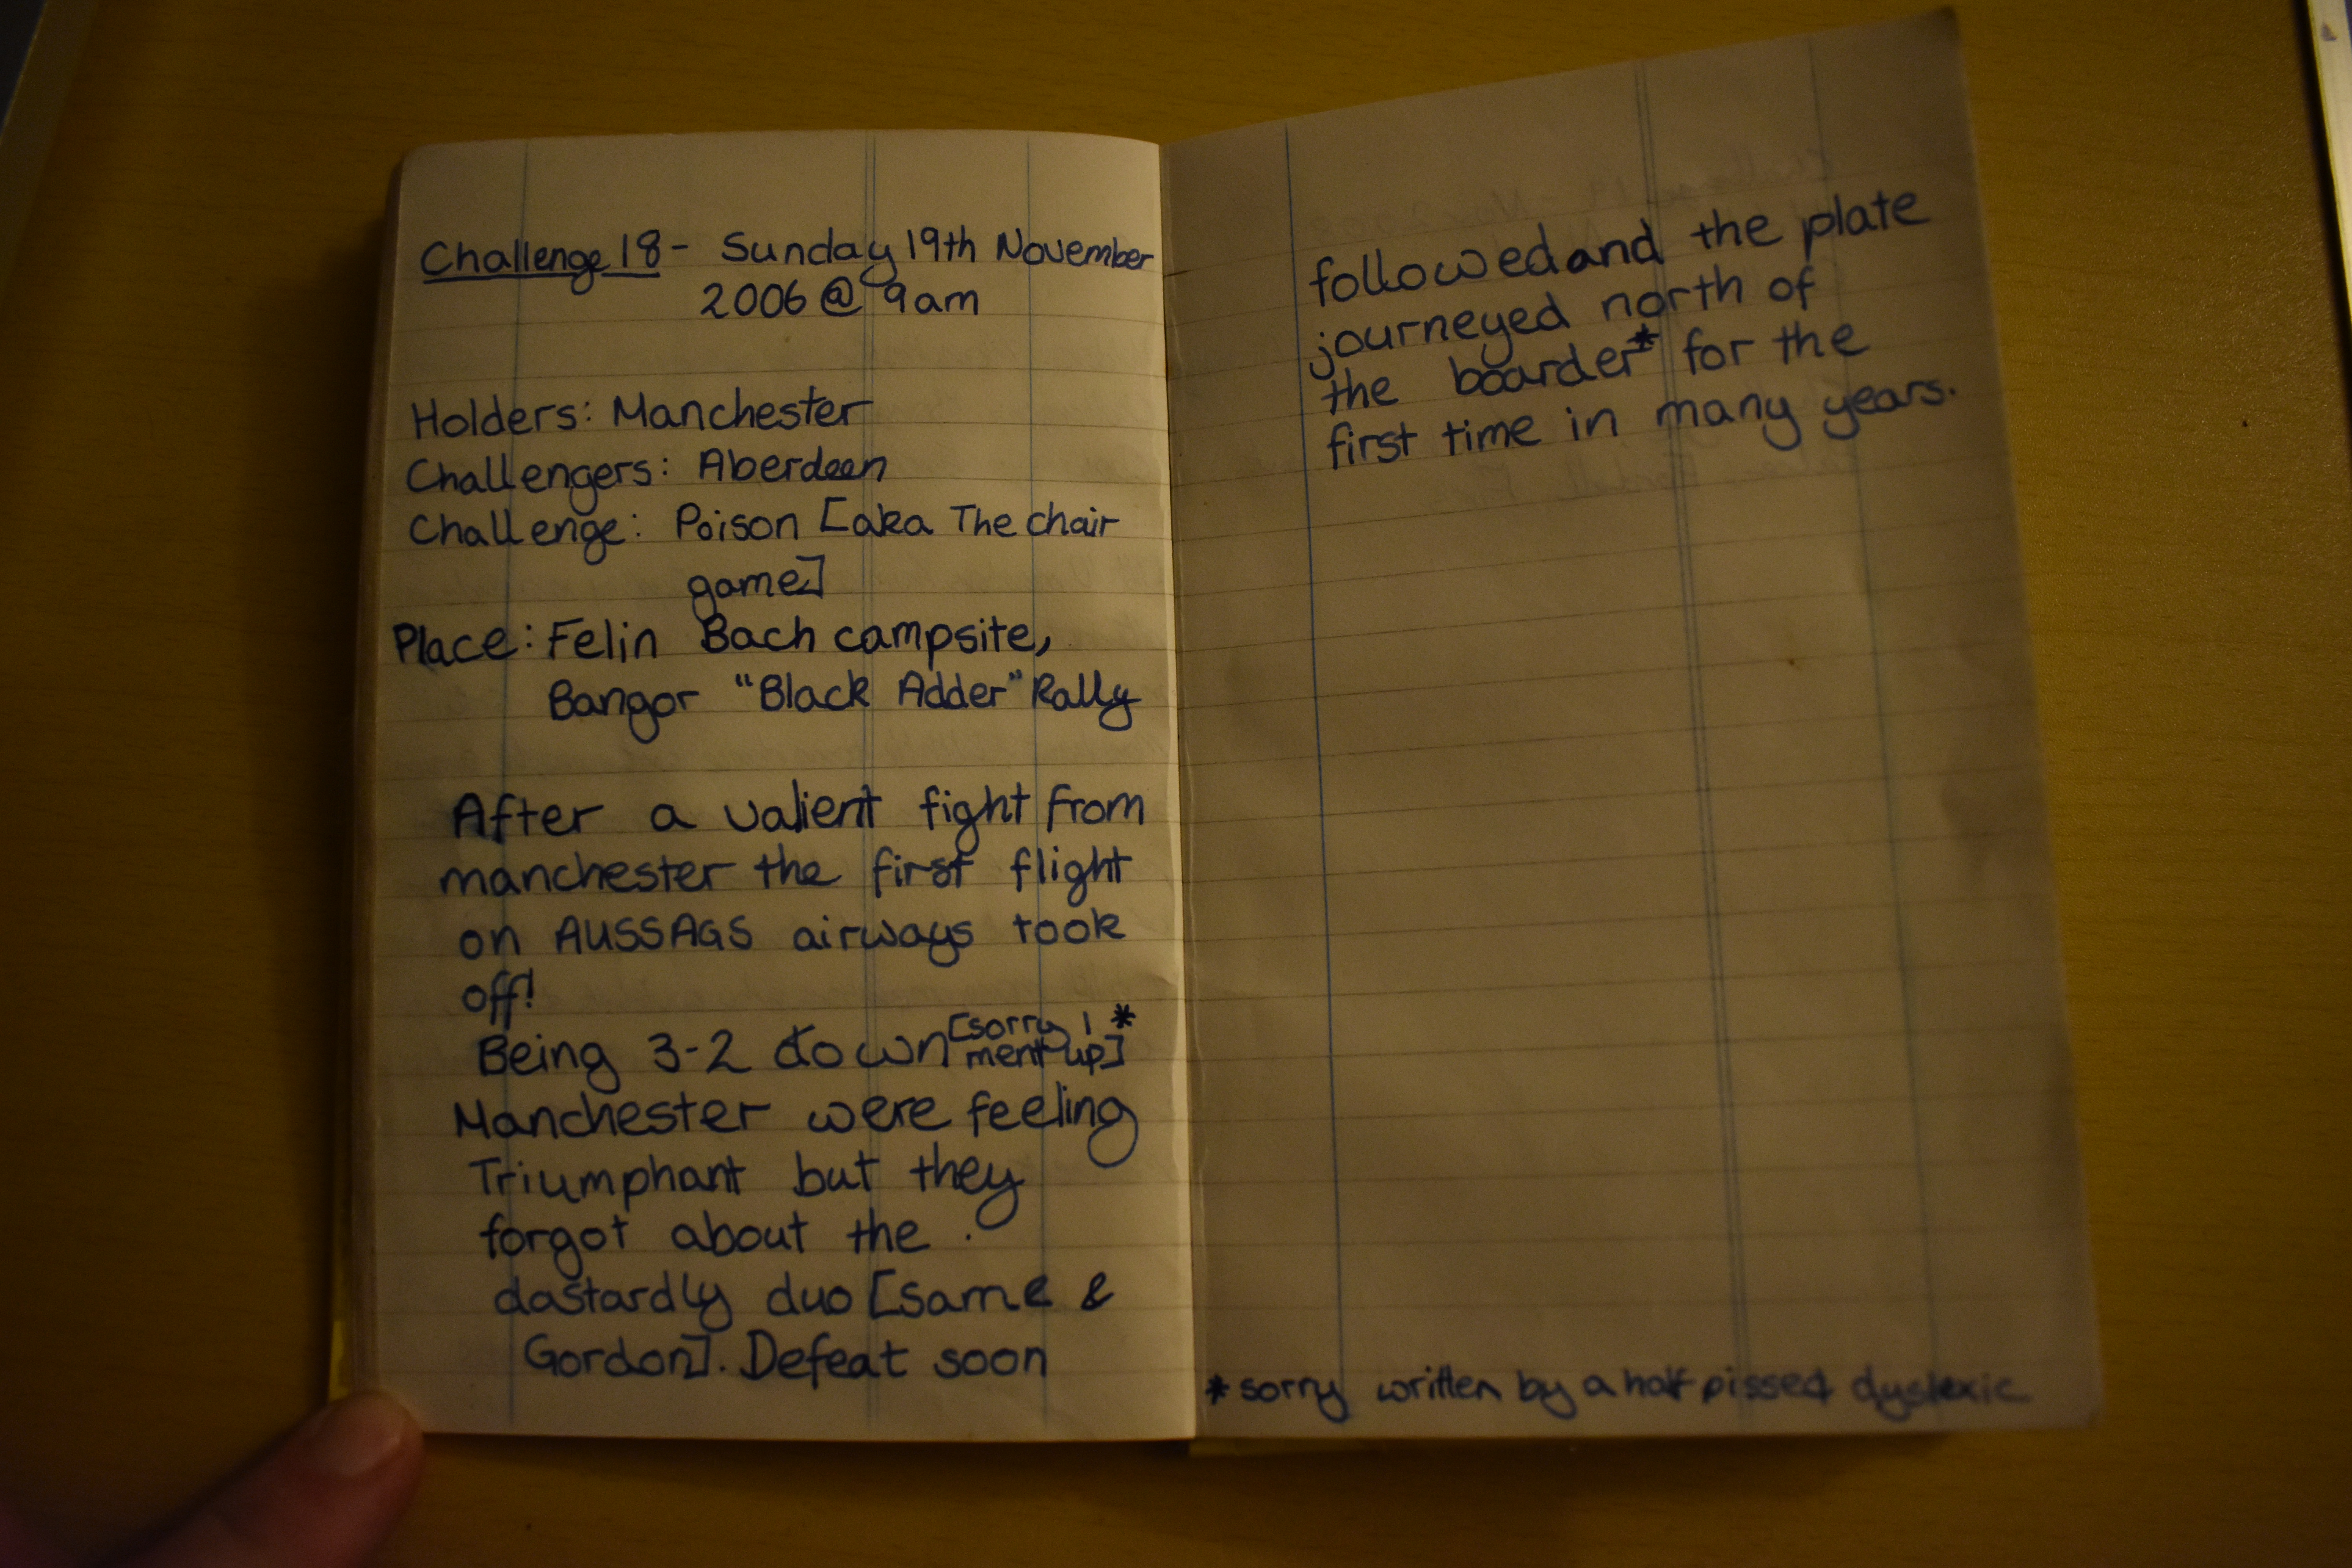 Challenge 18 - Sunday 19th November
2006 @ 9am
Holders: Manchester
Challengers: Aberdeen
Challenge: Poison [aka The chair
game]
Place: Felin Bach campsite,
Bangor "Black Adder" Rally
After a valient fight from
manchester the first flight
on AUSSAGS airways took
off!
Being 3-2 down [sorry I
ment up]*
Manchester were feeling
Triumphant but they
forgot about the
dastardly duo [same &
Gordon]. Defeat soon
followed and the plate
journeyed north of
the boarder* for the
first time in many years.
*sorry written by a half pissed dyslexic